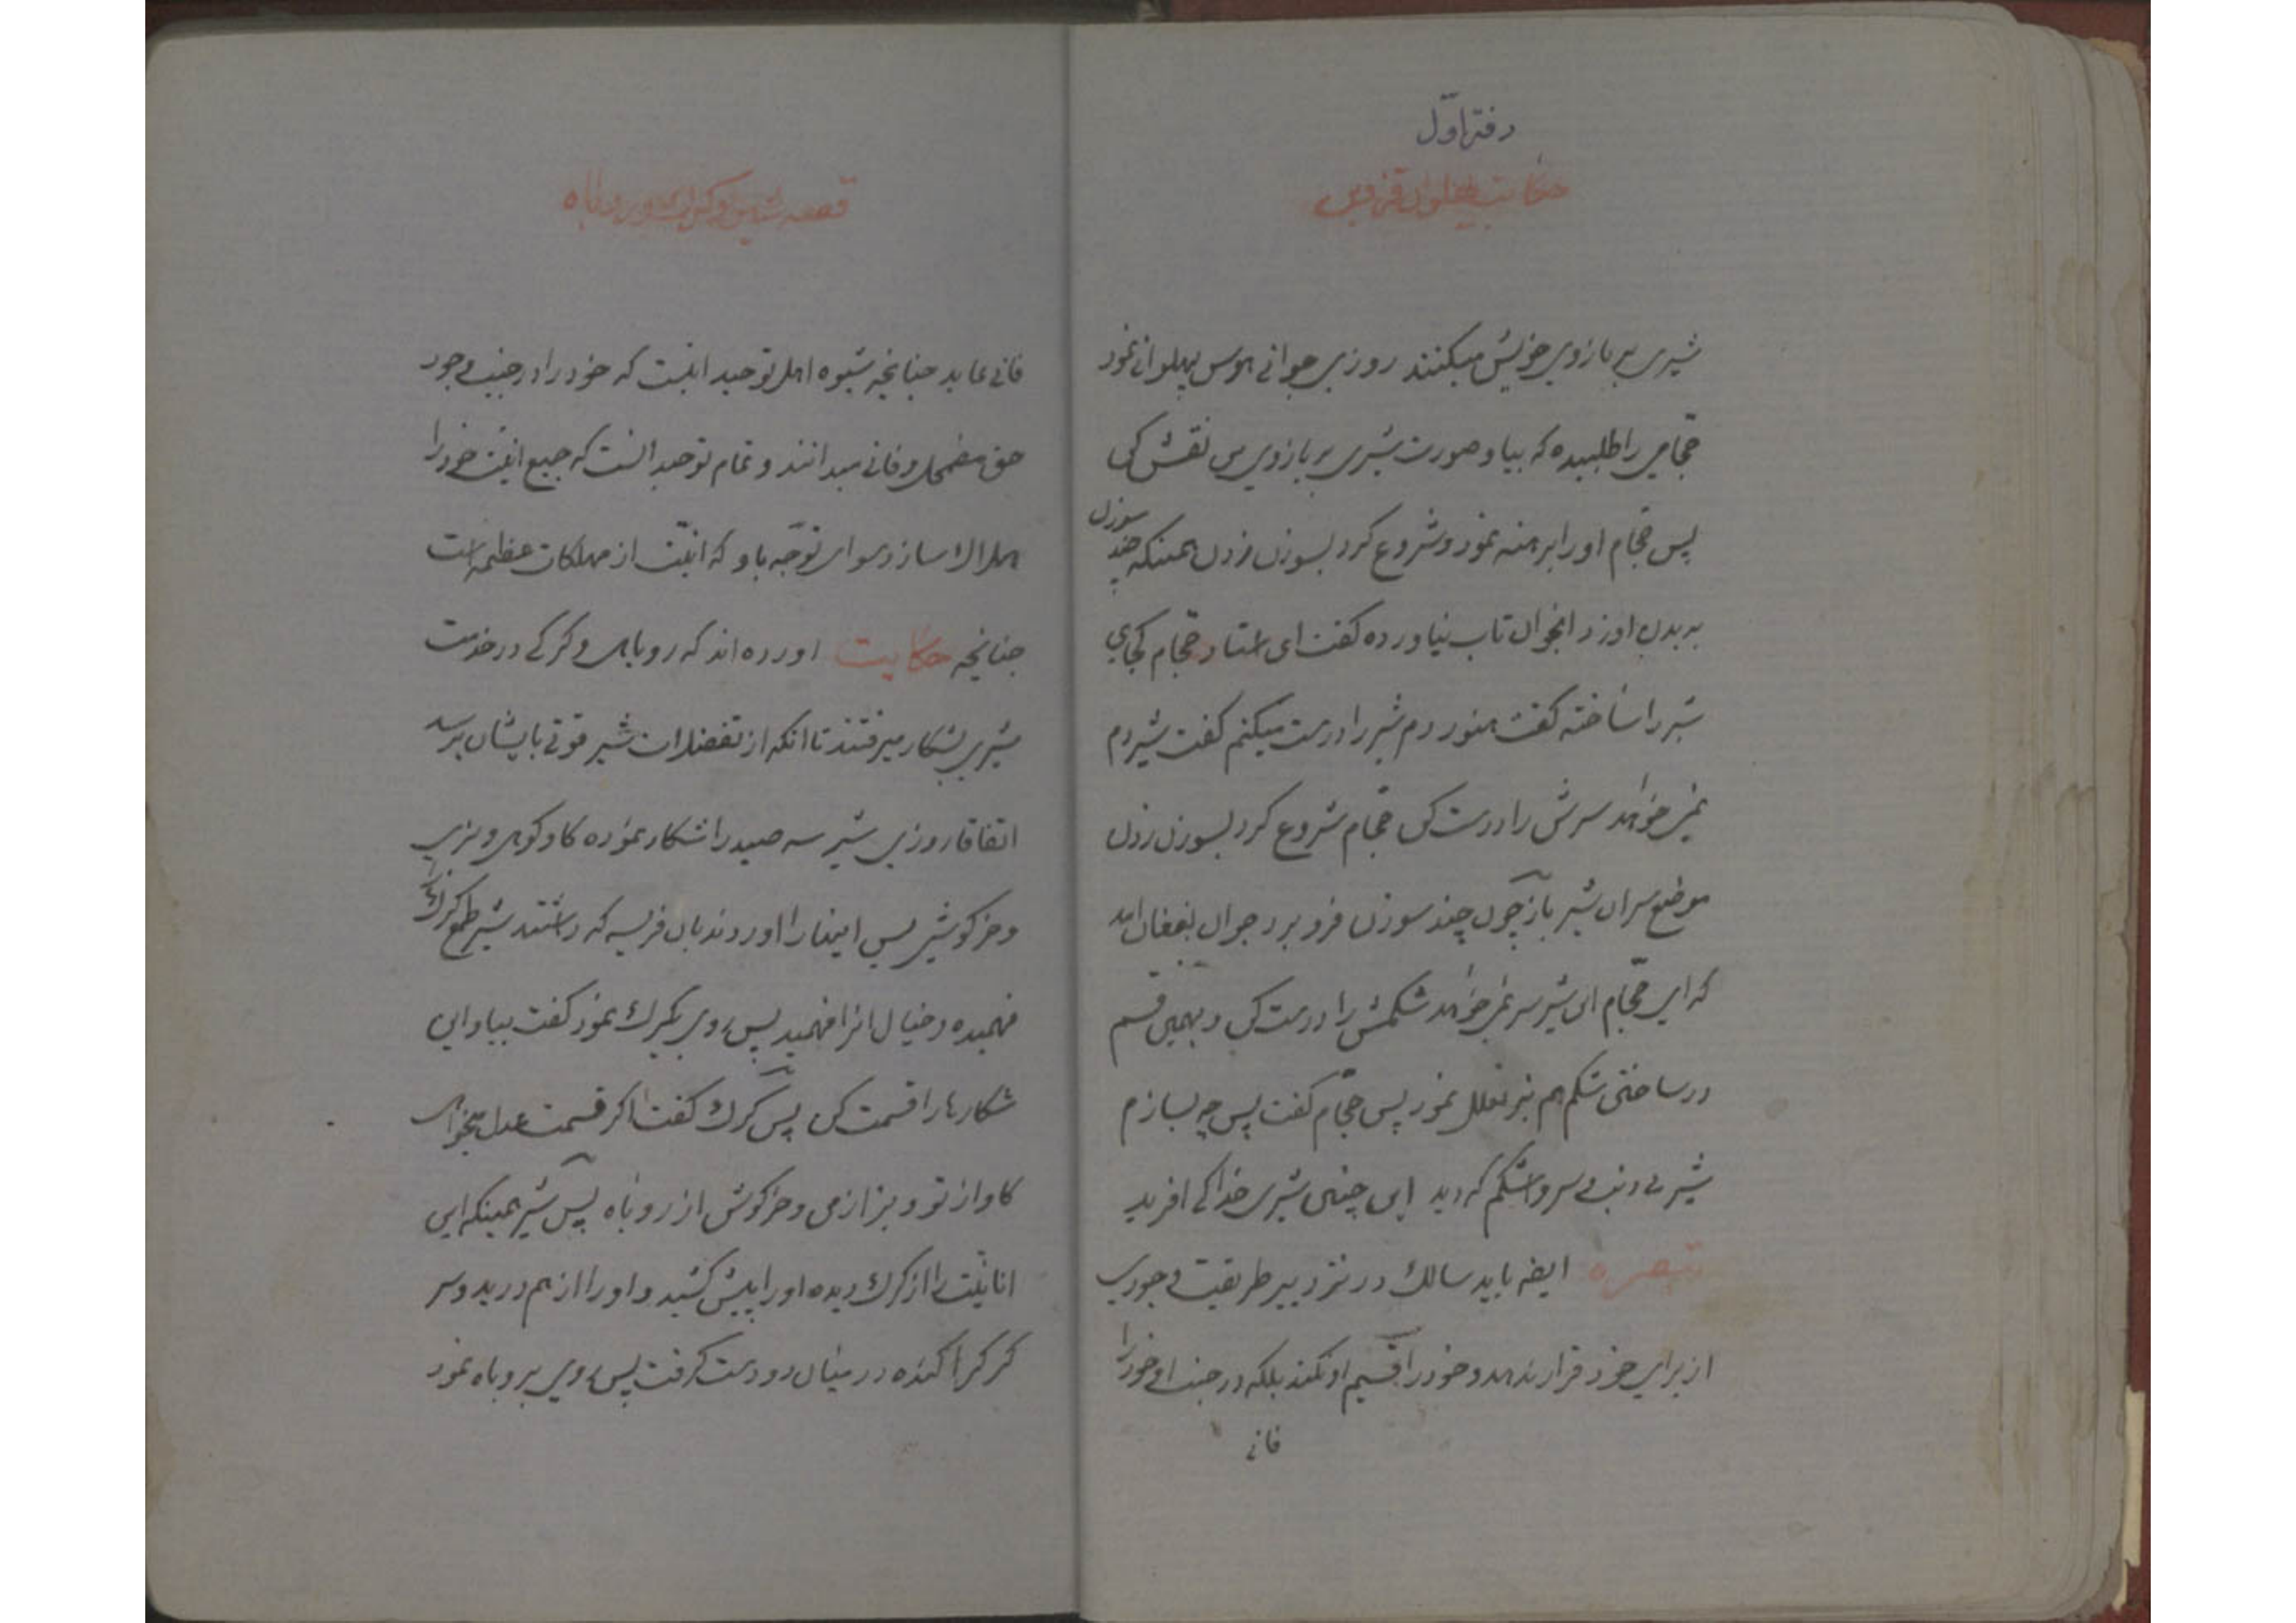 دفتر اول
حکایت پهلوان قزوینی
شیری بر بازوی خویش میکنند روزی جوانی هوس پهلوانی نمود
حجّامی را طلبیده که بیا و صورت شیری بر بازوی من نقش کن
پس حجام او را برهنه نمود و شروع کرد بسوزن زدن همینکه چند سوزن
به بدن او زد انجوان تاب نیاورده کفت ای استاد حجام کجای
شیر را ساخته کفت هنوز دم شیر را درست میکنم کفت شیر دم
نمیخواهد سرش را درست کن حجام شروع کرد بسوزن زدن
موضع سر ان شیر باز چون چند سوزن فرو برد جوان بفغان امد
که ای حجام این شیر سر نمیخواهد شکمش را درست کن و بهمین قسم
در ساختن شکم هم نیز تعلل نمود پس حجّام کفت پس چه بسازم
شیر بی دنب و سر و اشکم که دید این چنین شیری خدا کی افرید
تبصره ایضه باید سالک در نزد پیر طریقت وجودی
از برای خود قرار ندهد و خود را قسیم او نکند بلکه در جنب او خود را
فانی
قصه شیر و کرک و روباه
فانی نماید چنانچه شیوه اهل توحید اینست که خود را در جنب وجود
حق مضمحل و فانی میدانند و تمام توحید انست که جمیع انیّت خود را
هلاک سازد سوای توجّه باو که انیّت از مهلکات عظیمه است
چنانچه حکایت اورده اند که روباهی و کرکی در خدمت
شیری بشکار میرفتند تا انکه از تفضلات شیر قوتی بایشان برسد
اتفاقا روزی شیر سه صید را شکار نموده کاو کوهی و بزی
و خرکوشی پس اینها را اوردند بان فریسه که داشتند شیر طمع کرک را
فهمیده و خیال انرا فهمید پس روی بکرک نمود کفت بیا و این
شکارها را قسمت کن پس کرک کفت اکر قسمت عدل میخواهی
کاو از تو و بز از من و خرکوش از روباه پس شیر همینکه این
انانیّت را از کرک دیده او را پیش کشید و او را از هم درید و سر
کرک را کنده در میان دو دست کرفت پس روی بروباه نمود